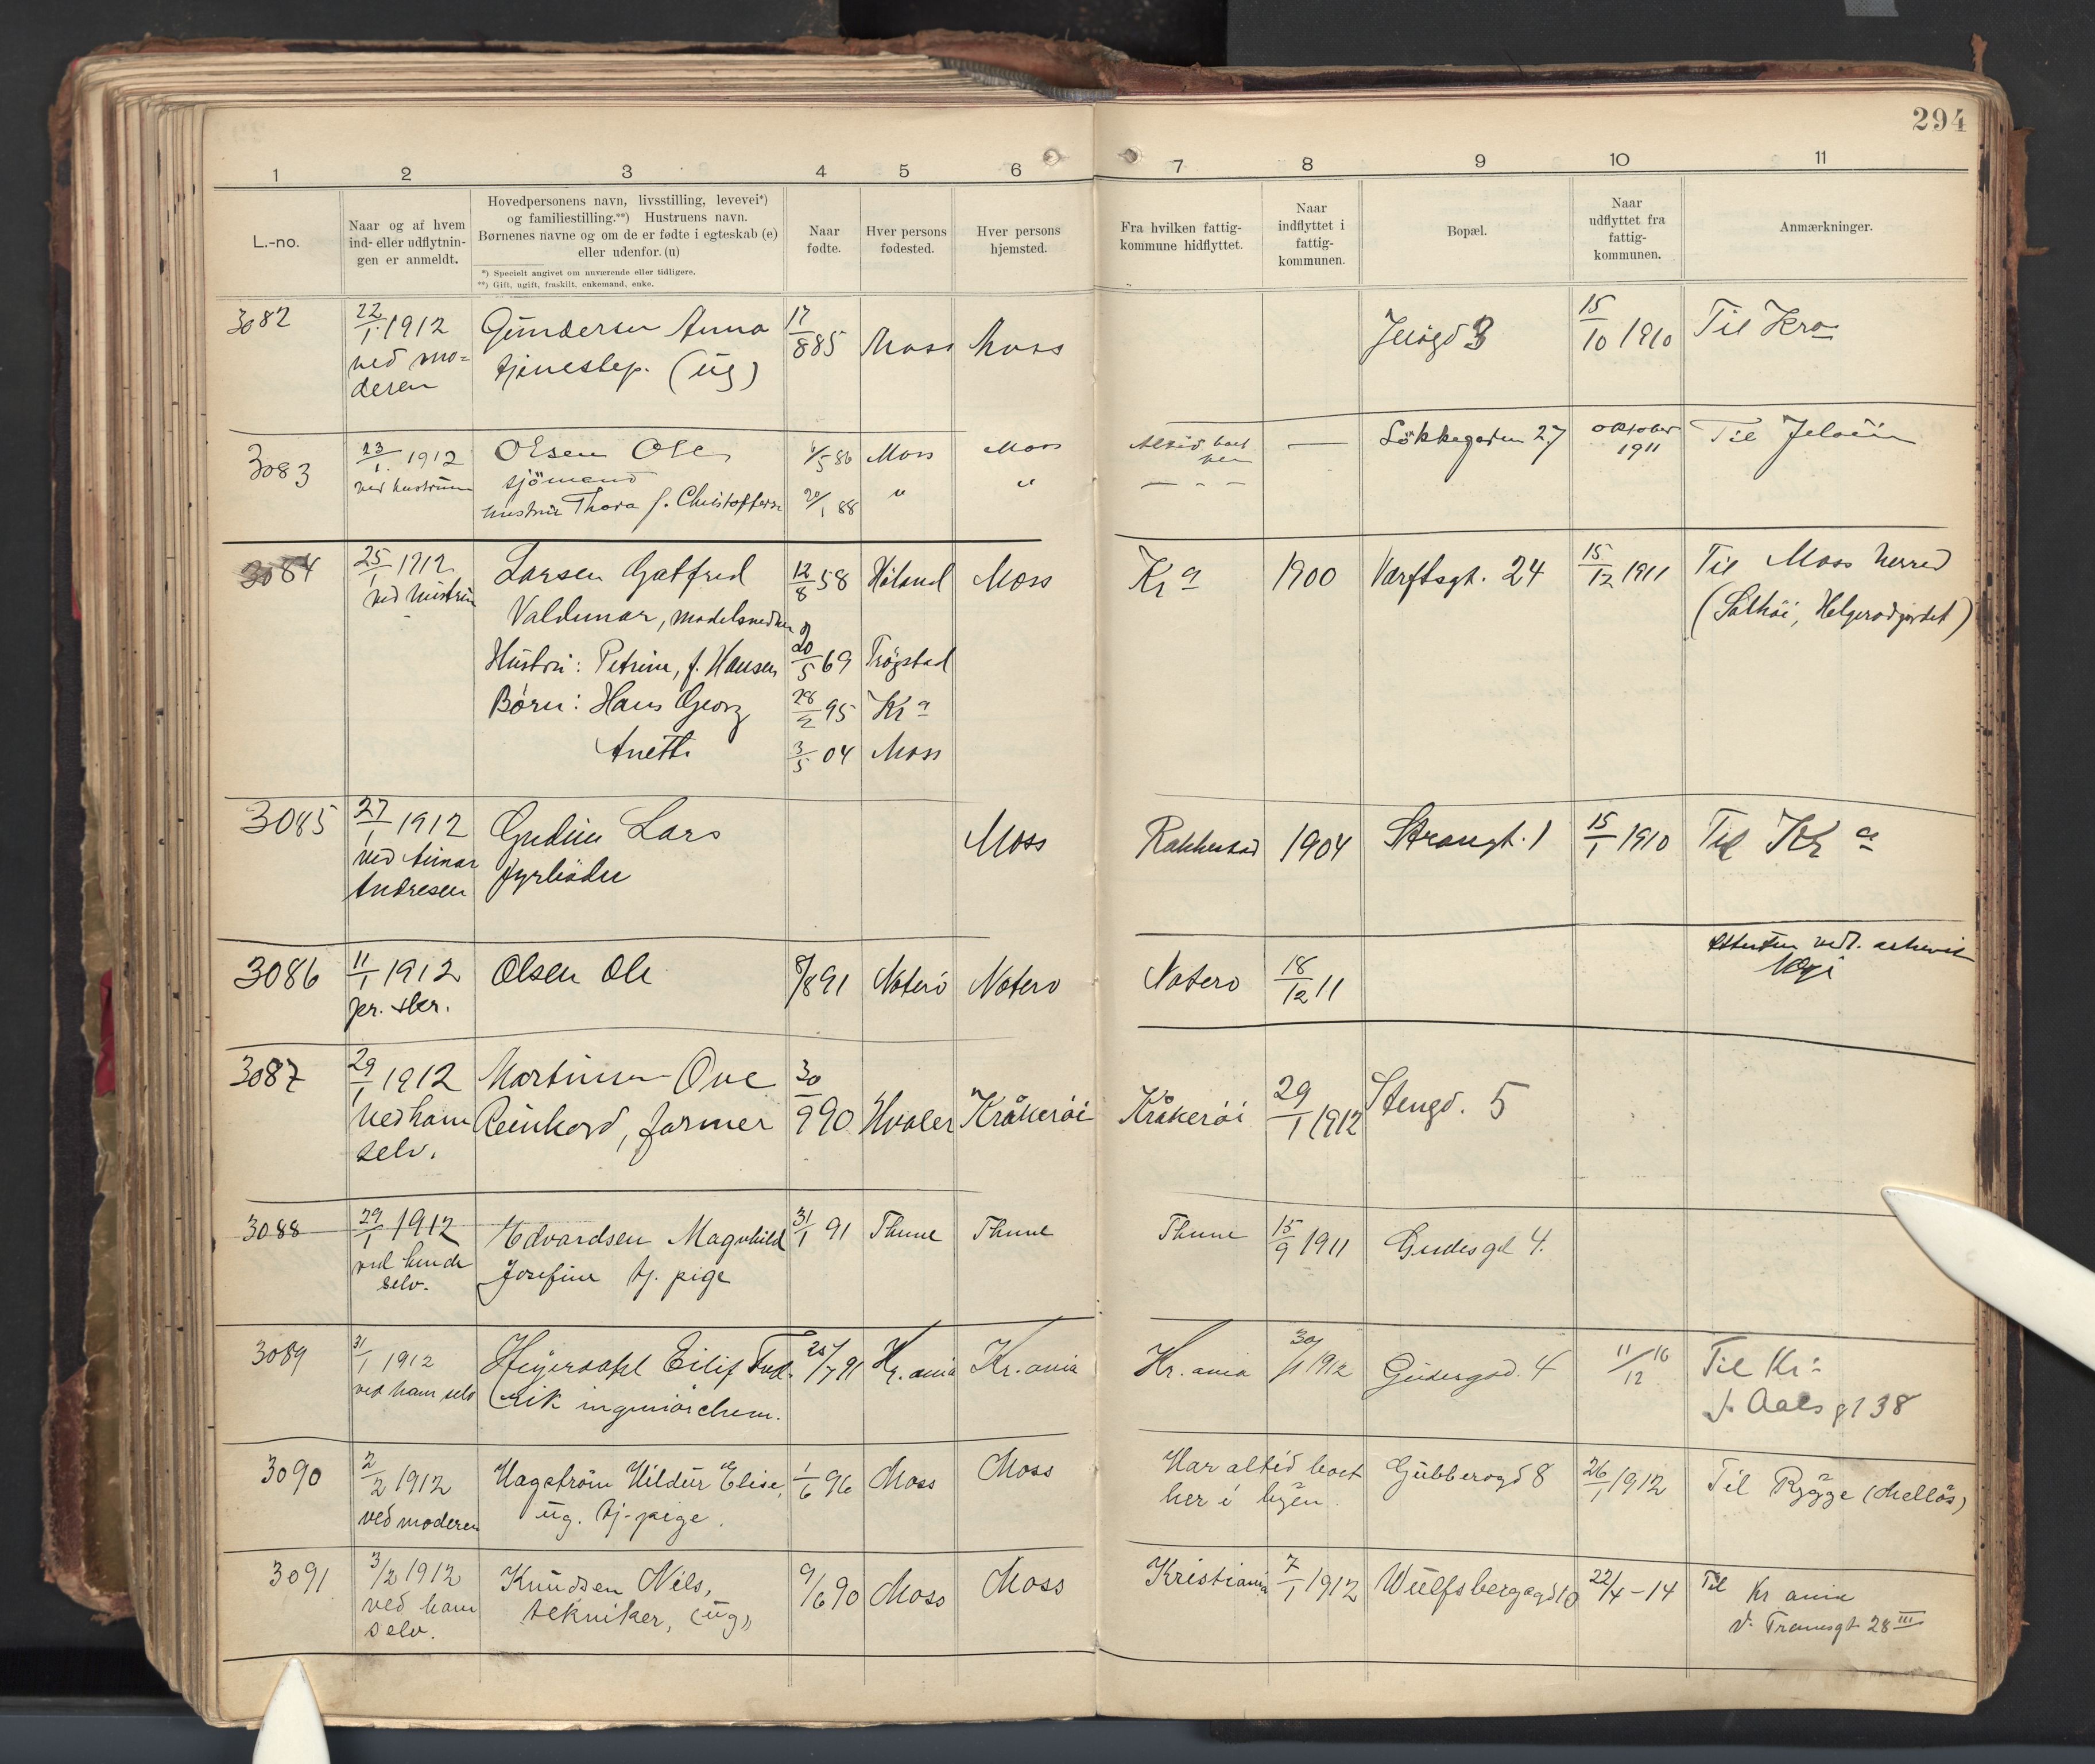 294
1 2 3 4 5 6 7 8 9 10 11
L.-no.
Naar og af hvem
ind- eller udflytnin-
gen er anmeldt.
Hovedpersonens navn, livsstilling, levevei*)
og familiestilling.**) Hustruens navn.
Børnenes navne og om de er fødte i egteskab (e)
eller udenfor. (u)
*) Specielt angivet om nuværende eller tidligere.
**) Gift, ugift, fraskilt, enkemand, enke.
Naar
fødte.
Hver persons
fødested.
Hver persons
hjemsted.
Fra hvilken fattig-
kommune hidflyttet.
Naar
indflyttet i
fattig-
kommunen.
Bopæl.
Naar
udflyttet fra
fattig-
kommunen.
Anmærkninger.
3082 22/1 1912 Gundersen Anna 17/8 85 Moss Moss 3 15/10 1910 Til Kra
ved mo-
deren
tjenestep. (ug)
3083 23/1. 1912 Olsen Ole 1/5 86 Moss Moss Altid boet — Løkkegaden 27 oktober Til Jeløen
her 1911
ved hustruen sjømand
hustru Thora f. Christoffersen 20/1 88 " " — - —
3084 25/1 1912 Larsen Gotfred 12/8 58 Høland Moss Kra 1900 Varftsgt. 24 15/12 1911 Til Moss herred
ved hustruen Valdemar, modelsnedker og (Solhøi, Helgerødgjerdet)
Hustru: Petrine, f. Hansen 20/5 69 Trøgstad
Børn: Hans Georg 28/2 95 Kra
Anetti 3/5 04 Moss
3085 27/1 1912 Gudim Lars Moss Rakkestad 1904 Strangt. 1 15/1 1910 Til Kra
ved Annar
Andresen
fyrbøder
3086 11/1 1912 Olsen Ole 8/8 91 Nøterø Nøterø Nøterø 18/12 11 vedl.
pr. skr.
3087 29/1 1912 Martinsen Ove 30/9 90 Hvaler Kråkerøi Kråkerøi 29/1 1912 Stengd. 5
Ved ham
selv.
Reinhard, farmer
3088 29/1 1912 Edvardsen Magnhild 31/1 91 Thune Thune Thune 15/9 1911 Gudesgd 4.
ved hende
selv.
Josefine tj. pige
3089 31/1 1912 Heyerdahl Eilif Fred- 25/7 91 Kr.ania Kr.ania Kr.ania 30/1 1912 Gudesgd. 4 11/12 16 Til Kr:
ved ham selv rik ingeniør chem. Aals gt 38
3090 2/2 1912 Hagstrøm Hildur Elise, 1/6 96 Moss Moss Har altid boet Gubberogd 8 26/1 1912 Til Rygge (Melløs)
her i byen
ved moderen ug. tj-pige.
3091 3/2 1912 Knudsen Nils, 9/6 90 Moss Moss Kristiania 7/1 1912 Wulfsbergsgd 10 22/4-14 Til Kr ania
ved ham
selv.
tekniker, (ug) v. Tromsgt 28 III